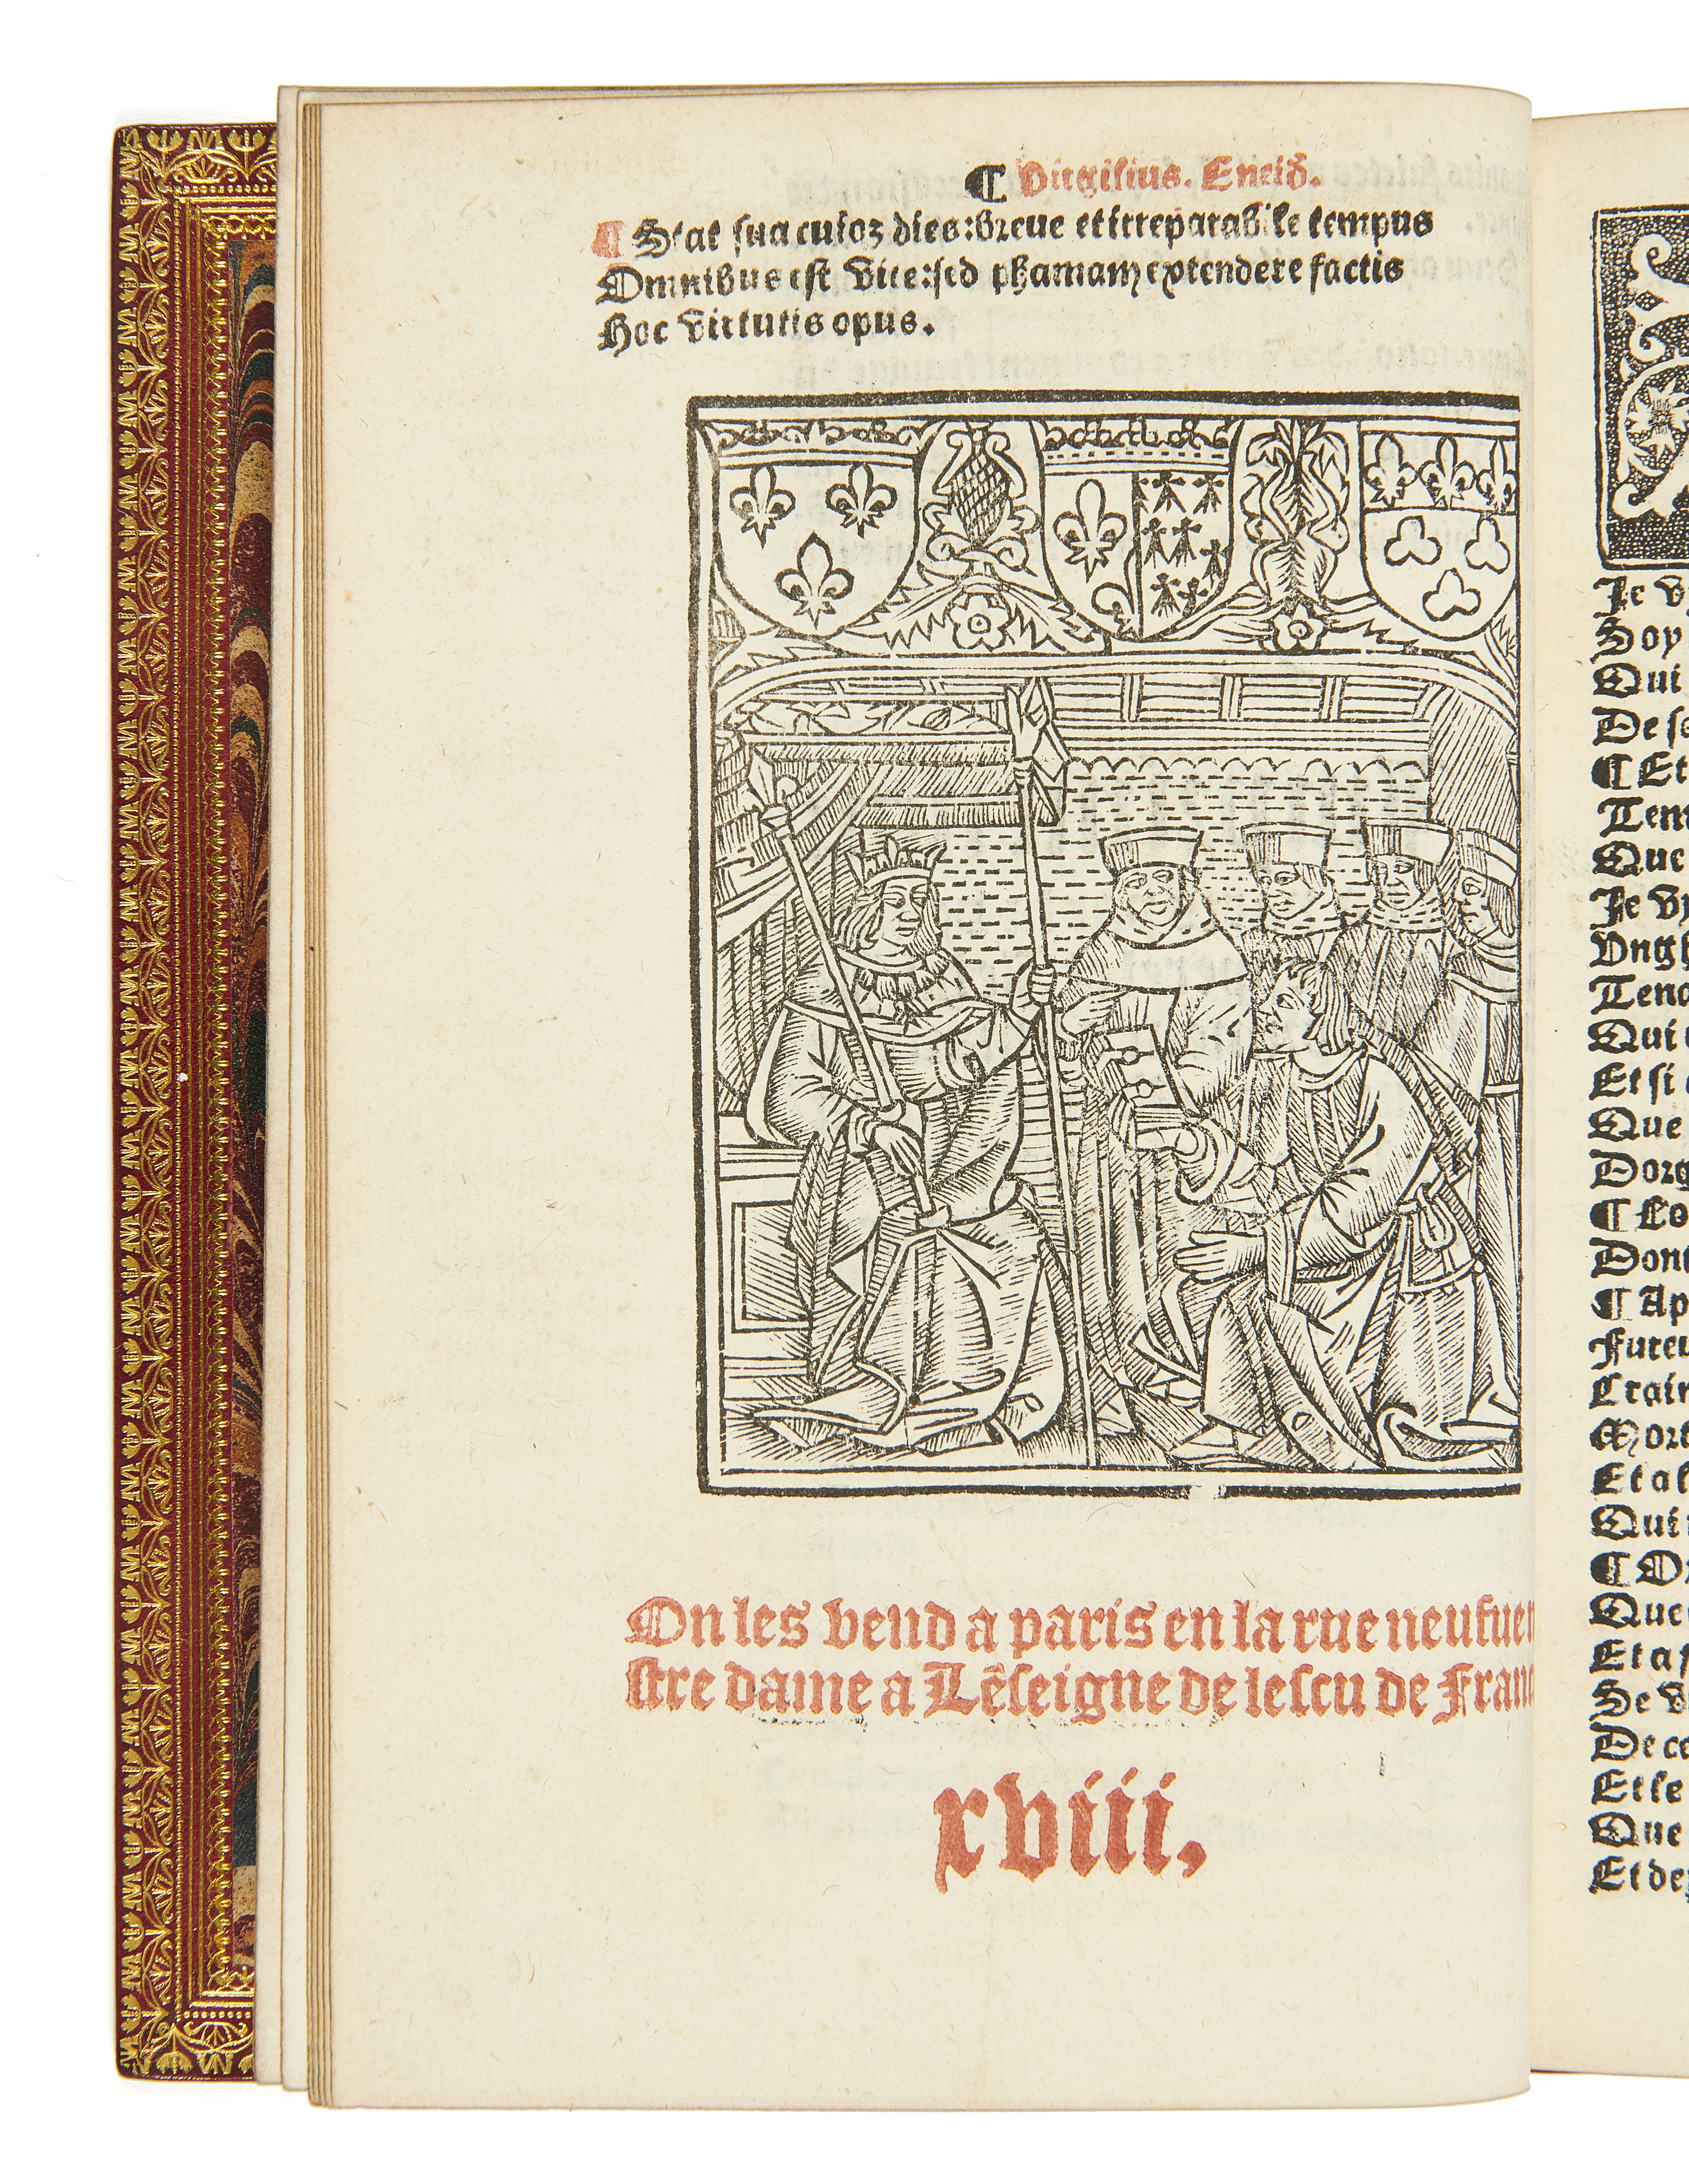 ¶ Virgilius. Eneid̃.
¶ Stat sua cuiqꝫ dies: breue et irreparabile tempus
Omnibus est vite: sed phamam extendere factis
Hoc virtutis opus.
On les vend a paris en la rue neufue
stre dame a Lẽseigne de lescu de Franc
xviii.
Je v
Soy
Qui
De se
¶ Et
Tem
Que
Je vy
Vng
Tena
Qui
Et si
Que
Dorg
¶ Lo
Dont
¶ Ap
Fureu
Crain
Mort
Et al
Qui
¶ Or
Que
Et a
Se v
De ce
Et le
Que
Et de